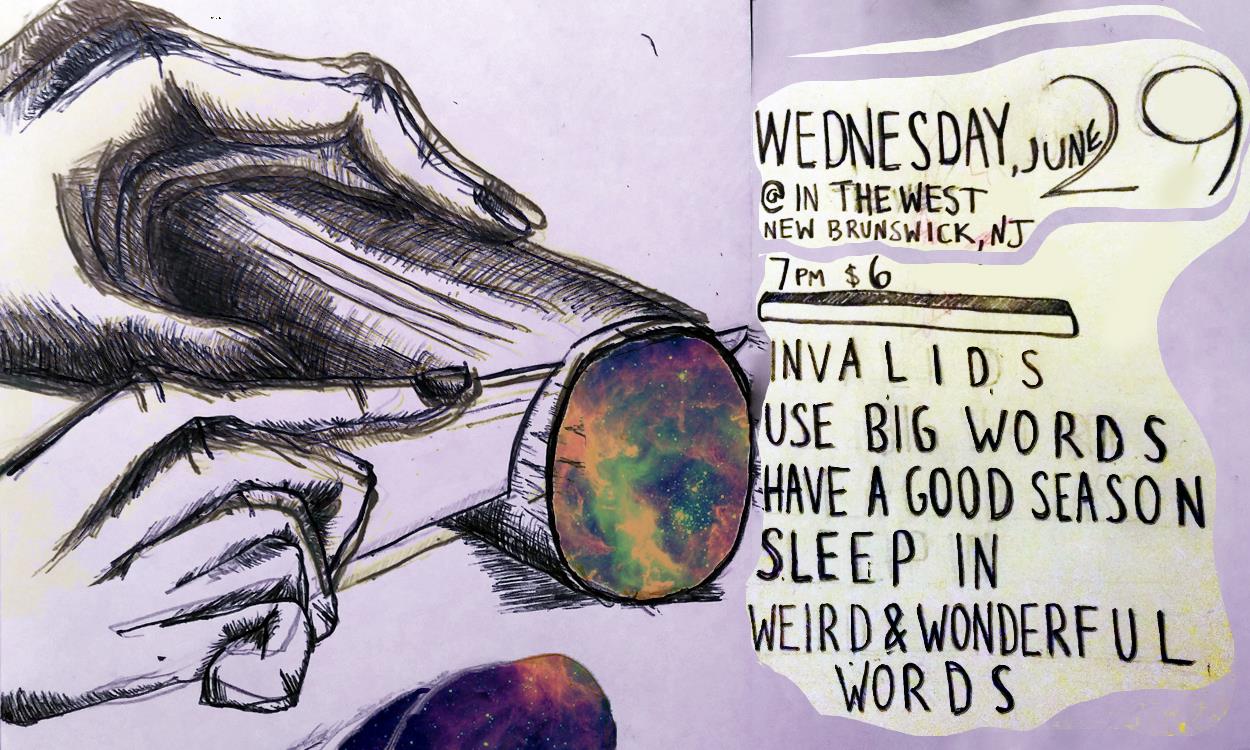 WEDNESDAY, JUNE 29
@ IN THE WEST
NEW BRUNSWICK, NJ
7PM $6
INVALIDS
USE BIG WORDS
HAVE A GOOD SEASON
SLEEP IN
WEIRD & WONDERFUL
WORDS